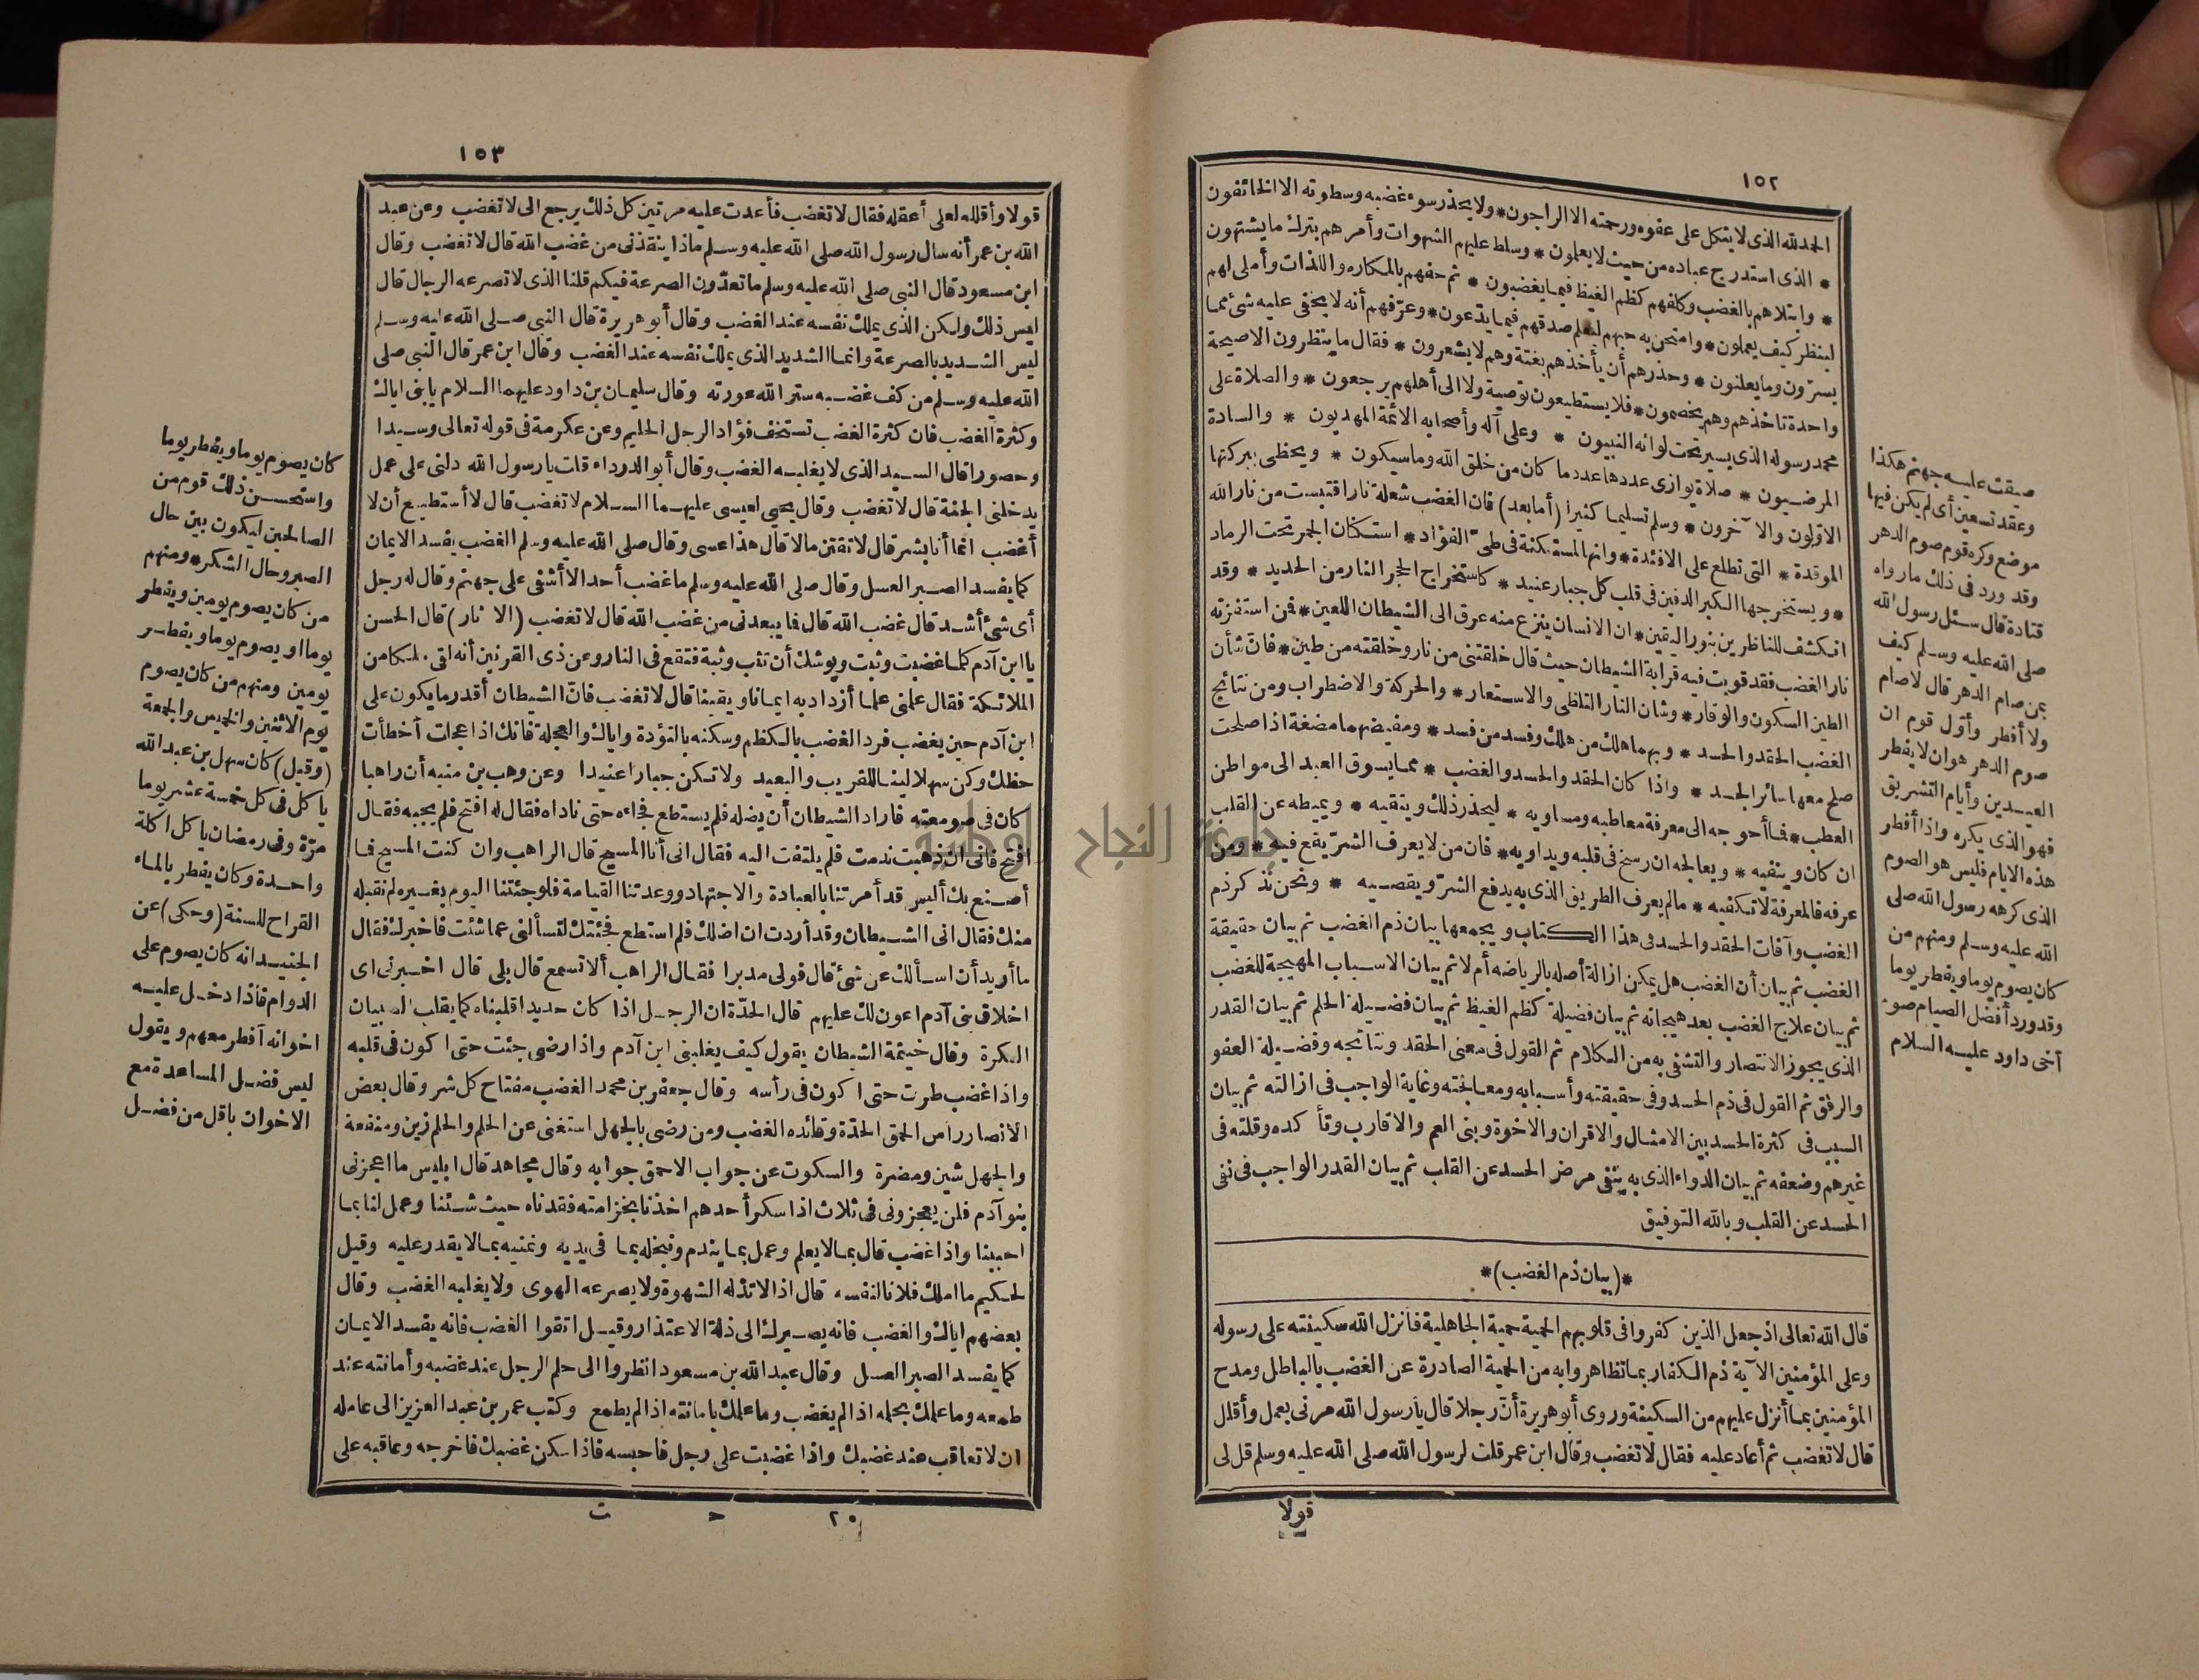 ١٥٢
الحمد لله الذى لا يتكل على عفوه ورحمته الا الراجون * ولا يحذر سوء غضبه وسطوته الا الخائفون
* الذى استدرج عباده من حيث لا يعلمون * وسلط عليهم الشهوات وأمرهم بترك ما يشتهون
* وابتلاهم بالغضب وكلفهم كظم الغيظ فيما يغضبون * ثم حفهم بالمكاره واللذات وأملى لهم
لينظر كيف يعملون * وامتحن به حبهم ليعلم صدقهم فيما يدّعون * وعرّفهم أنه لا يخفى عليه شئ مما
يسرّون وما يعلنون * وحذرهم أن يأخذهم بغتة وهم لا يشعرون * فقال ما ينظرون الا صيحة
واحدة تاخذهم وهم يخصمون * فلا يستطيعون توصية ولا الى أهلهم يرجعون * والصلاة على
محمد رسوله الذى يسير تحت لوائه النبيون * وعلى آله وأصحابه الائمة المهديون * والسادة
المرضيون * صلاة يوازى عددها عدد ما كان من خلق الله وما سيكون * ويحظى ببركتها
الاوّلون والآخرون * وسلم تسليما كثيرا (أما بعد) فان الغضب شعلة نار اقتبست من نار الله
الموقدة * التى تطلع على الافئدة * وانها لمستكنة فى طىّ الفؤاد * استكنان الجمر تحت الرماد
* ويستخرجها الكبر الدفين فى قلب كل جبار عنيد * كاستخراج الحجر النار من الحديد * وقد
انكشف للناظرين بنور اليقين * ان الانسان ينزع منه عرق الى الشيطان اللعين * فمن استفزته
نار الغضب فقد قويت فيه قرابة الشيطان حيث قال خلقتنى من نار وخلقته من طين * فان شأن
الطين السكون والوقار * وشان النار التلظى والاستعار * والحركة والاضطراب ومن نتائج
الغضب الحقد والحسد * وبهما هلك من هلك وفسد من فسد * ومفيضهما مضغة اذا صلحت
صلح معها سائر الجسد * واذا كان الحقد والحسد والغضب * مما يسوق العبد الى مواطن
العطب * فما أحوجه الى معرفة معاطبه ومساويه * ليحذر ذلك ويتقيه * ويميطه عن القلب
ان كان وينفيه * ويعالجه ان رسخ فى قلبه ويداويه * فان من لا يعرف الشرّ يقع فيه * ومن
عرفه فالمعرفة لا تكفيه * مالم يعرف الطريق الذى به يدفع الشرّ ويقصيه * ونحن نذكر ذم
الغضب وآفات الحقد والحسد فى هذا الكتاب ويجمعها بيان ذم الغضب ثم بيان حقيقة
الغضب ثم بيان أن الغضب هل يمكن ازالة أصله بالرياضه أم لا ثم بيان الاسباب المهيجة للغضب
ثم بيان علاج الغضب بعد هيجانه ثم بيان فضيلة كظم الغيظ ثم بيان فضيلة الحلم ثم بيان القدر
الذى يجوز الانتصار والتشفى به من الكلام ثم القول فى معنى الحقد ونتائجه وفضيلة العفو
والرفق ثم القول فى ذم الحسد وفى حقيقته وأسبابه ومعالجته وغاية الواجب فى ازالته ثم بيان
السبب فى كثرة الحسد بين الامثال والاقران والاخوة وبنى العم والاقارب وتأكده وقلته فى
غيرهم وضعفه ثم بيان الدواء الذى به ينفى مرض الحسد عن القلب ثم بيان القدر الواجب فى نفى
الحسد عن القلب وبالله التوفيق
*(بيان ذم الغضب)*
قال الله تعالى اذ جعل الذين كفروا فى قلوبهم الحمية حمية الجاهلية فأنزل الله سكينته على رسوله
وعلى المؤمنين الآية ذم الكفار بما تظاهروا به من الحمية الصادرة عن الغضب بالباطل ومدح
المؤمنين بما أنزل عليهم من السكينة وروى أبو هريرة أنّ رجلا قال يا رسول الله مرنى بعمل وأقلل
قال لا تغضب ثم أعاد عليه فقال لا تغضب وقال ابن عمر قلت لرسول الله صلى الله عليه وسلم قل لى
قولا
ضيقت عليه جهنم هكذا
وعقد تسعين أى لم يكن فيها
موضع وكره قوم صوم الدهر
وقد ورد فى ذلك مارواه
قتادة قال سئل رسول الله
صلى الله عليه وسلم كيف
بمن صام الدهر قال لاصام
ولا أفطر وأوّل قوم ان
صوم الدهر هوان لا يفطر
العيدين وأيام التشريق
فهو الذى يكره واذا أفطر
هذه الايام فليس هو الصوم
الذى كرهه رسول الله صلى
الله عليه وسلم ومنهم من
كان يصوم يوما ويفطر يوما
وقد ورد أفضل الصيام صوم
أخى داود عليه السلام
١٥٣
قولا وأقلله لعلى أعقله فقال لا تغضب فأعدت عليه مرتين كل ذلك يرجع الى لا تغضب وعن عبد
الله بن عمر أنه سال رسول الله صلى الله عليه وسلم ماذا ينقذنى من غضب الله قال لا تغضب وقال
ابن مسعود قال النبى صلى الله عليه وسلم ما تعدّون الصرعة فيكم قلنا الذى لا تصرعه الرجال قال
ليس ذلك ولكن الذى يملك نفسه عند الغضب وقال أبو هريرة قال النبى صلى الله عليه وسلم
ليس الشديد بالصرعة وانما الشديد الذى يملك نفسه عند الغضب وقال ابن عمر قال النبى صلى
الله عليه وسلم من كف غضبه ستر الله عورته وقال سليمان بن داود عليهما السلام يابنى اياك
وكثرة الغضب فان كثرة الغضب تستخف فؤاد الرجل الحليم وعن عكرمة فى قوله تعالى وسيدا
وحصورا قال السيد الذى لا يغلبه الغضب وقال أبو الدرداء قلت يا رسول الله دلنى على عمل
يدخلنى الجنة قال لا تغضب وقال يحيى لعيسى عليهما السلام لا تغضب قال لا أستطيع أن لا
أغضب انما أنا بشر قال لا تقتن مالا قال هذا عسى وقال صلى الله عليه وسلم الغضب يفسد الايمان
كما يفسد الصبر العسل وقال صلى الله عليه وسلم ما غضب أحد الا أشفى على جهنم وقال له رجل
أى شئ أشد قال غضب الله قال فما يبعدنى من غضب الله قال لا تغضب (الآثار) قال الحسن
يا ابن آدم كلما غضبت وثبت ويوشك أن تثب وثبة فتقع فى النار وعن ذى القرنين أنه لقى ملكا من
الملائكة فقال علمنى علما أزداد به ايمانا ويقينا قال لا تغضب فانّ الشيطان أقدر ما يكون على
ابن آدم حين يغضب فرد الغضب بالكظم وسكنه بالتؤدة واياك والعجلة فانك اذا عجلت أخطأت
حظك وكن سهلا لينا للقريب والبعيد ولا تكن جبارا عنيدا وعن وهب بن منبه أن راهبا
كان فى صومعته فاراد الشيطان أن يضله فلم يستطع فجاءه حتى ناداه فقال له افتح فلم يجبه فقال
افتح فانى ان ذهبت ندمت فلم يلتفت اليه فقال انى أنا المسيح قال الراهب وان كنت المسيح فما
أصنع بك أليس قد أمرتنا بالعبادة والاجتهاد ووعدتنا القيامة فلو جئتنا اليوم بغيره لم نقبله
منك فقال انى الشيطان وقد أردت ان اضلك فلم استطع فجئتك لتسألنى عما شئت فاخبرك فقال
ما أريد أن اسألك عن شئ قال فولى مدبرا فقال الراهب ألا تسمع قال بلى قال اخبرنى اى
اخلاق بنى آدم اعون لك عليهم قال الحدّة ان الرجل اذا كان حديدا قلبناه كما يقلب الصبيان
الكرة وقال خيثمة الشيطان يقول كيف يغلبنى ابن آدم واذا رضى جئت حتى اكون فى قلبه
واذا غضب طرت حتى اكون فى رأسه وقال جعفر بن محمد الغضب مفتاح كل شر وقال بعض
الانصار راس الحمق الحدّة وقائده الغضب ومن رضى بالجهل استغنى عن الحلم والحلم زين ومنفعة
والجهل شين ومضرة والسكوت عن جواب الاحمق جوابه وقال مجاهد قال ابليس ما اعجزنى
بنو آدم فلن يعجزونى فى ثلاث اذا سكر أحدهم اخذنا بخزامته فقدناه حيث شئنا وعمل لنا بما
احببنا واذا غضب قال بما لا يعلم وعمل بما يندم ونبخله بما فى يديه ونمنيه بما لا يقدر عليه وقيل
لحكيم ما املك فلانا لنفسه قال اذا لا تذله الشهوة ولا يصرعه الهوى ولا يغلبه الغضب وقال
بعضهم اياك والغضب فانه يصيرك الى ذلة الاعتذار وقيل اتقوا الغضب فانه يفسد الايمان
كما يفسد الصبر العسل وقال عبد الله بن مسعود انظروا الى حلم الرجل عند غضبه وأمانته عند
طمعه وما علمك بحلمه اذا لم يغضب وما علمك بامانته اذا لم يطمع وكتب عمر بن عبد العزيز الى عامله
ان لا تعاقب عند غضبك واذا غضبت على رجل فاحبسه فاذا سكن غضبك فاخرجه وعاقبه على
٢٠ ح ت
كان يصوم يوما ويفطر يوما
واستحسن ذلك قوم من
الصالحين ليكون بين حال
الصبر وحال الشكر * ومنهم
من كان يصوم يومين ويفطر
يوما او يصوم يوما ويفطر
يومين ومنهم من كان يصوم
يوم الاثنين والخميس والجمعة
(وقيل) كان سهل بن عبد الله
ياكل فى كل خمسة عشر يوما
مرّة وفى رمضان ياكل اكلة
واحدة وكان يفطر بالماء
القراح للسنة (وحكى) عن
الجنيد انه كان يصوم على
الدوام فاذا دخل عليه
اخوانه أفطر معهم ويقول
ليس فضل المساعدة مع
الاخوان باقل من فضل
جامعة النجاح الوطنية